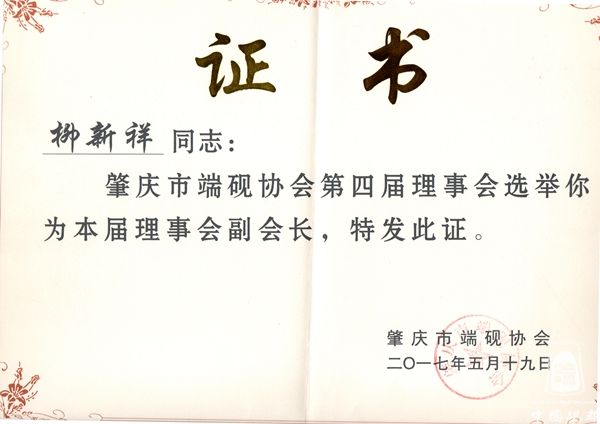 证书
柳新祥同志：
肇庆市端砚协会第四届理事会选举你
为本届理事会副会长，特发此证。
肇庆市端砚协会
二〇一七年五月十九日